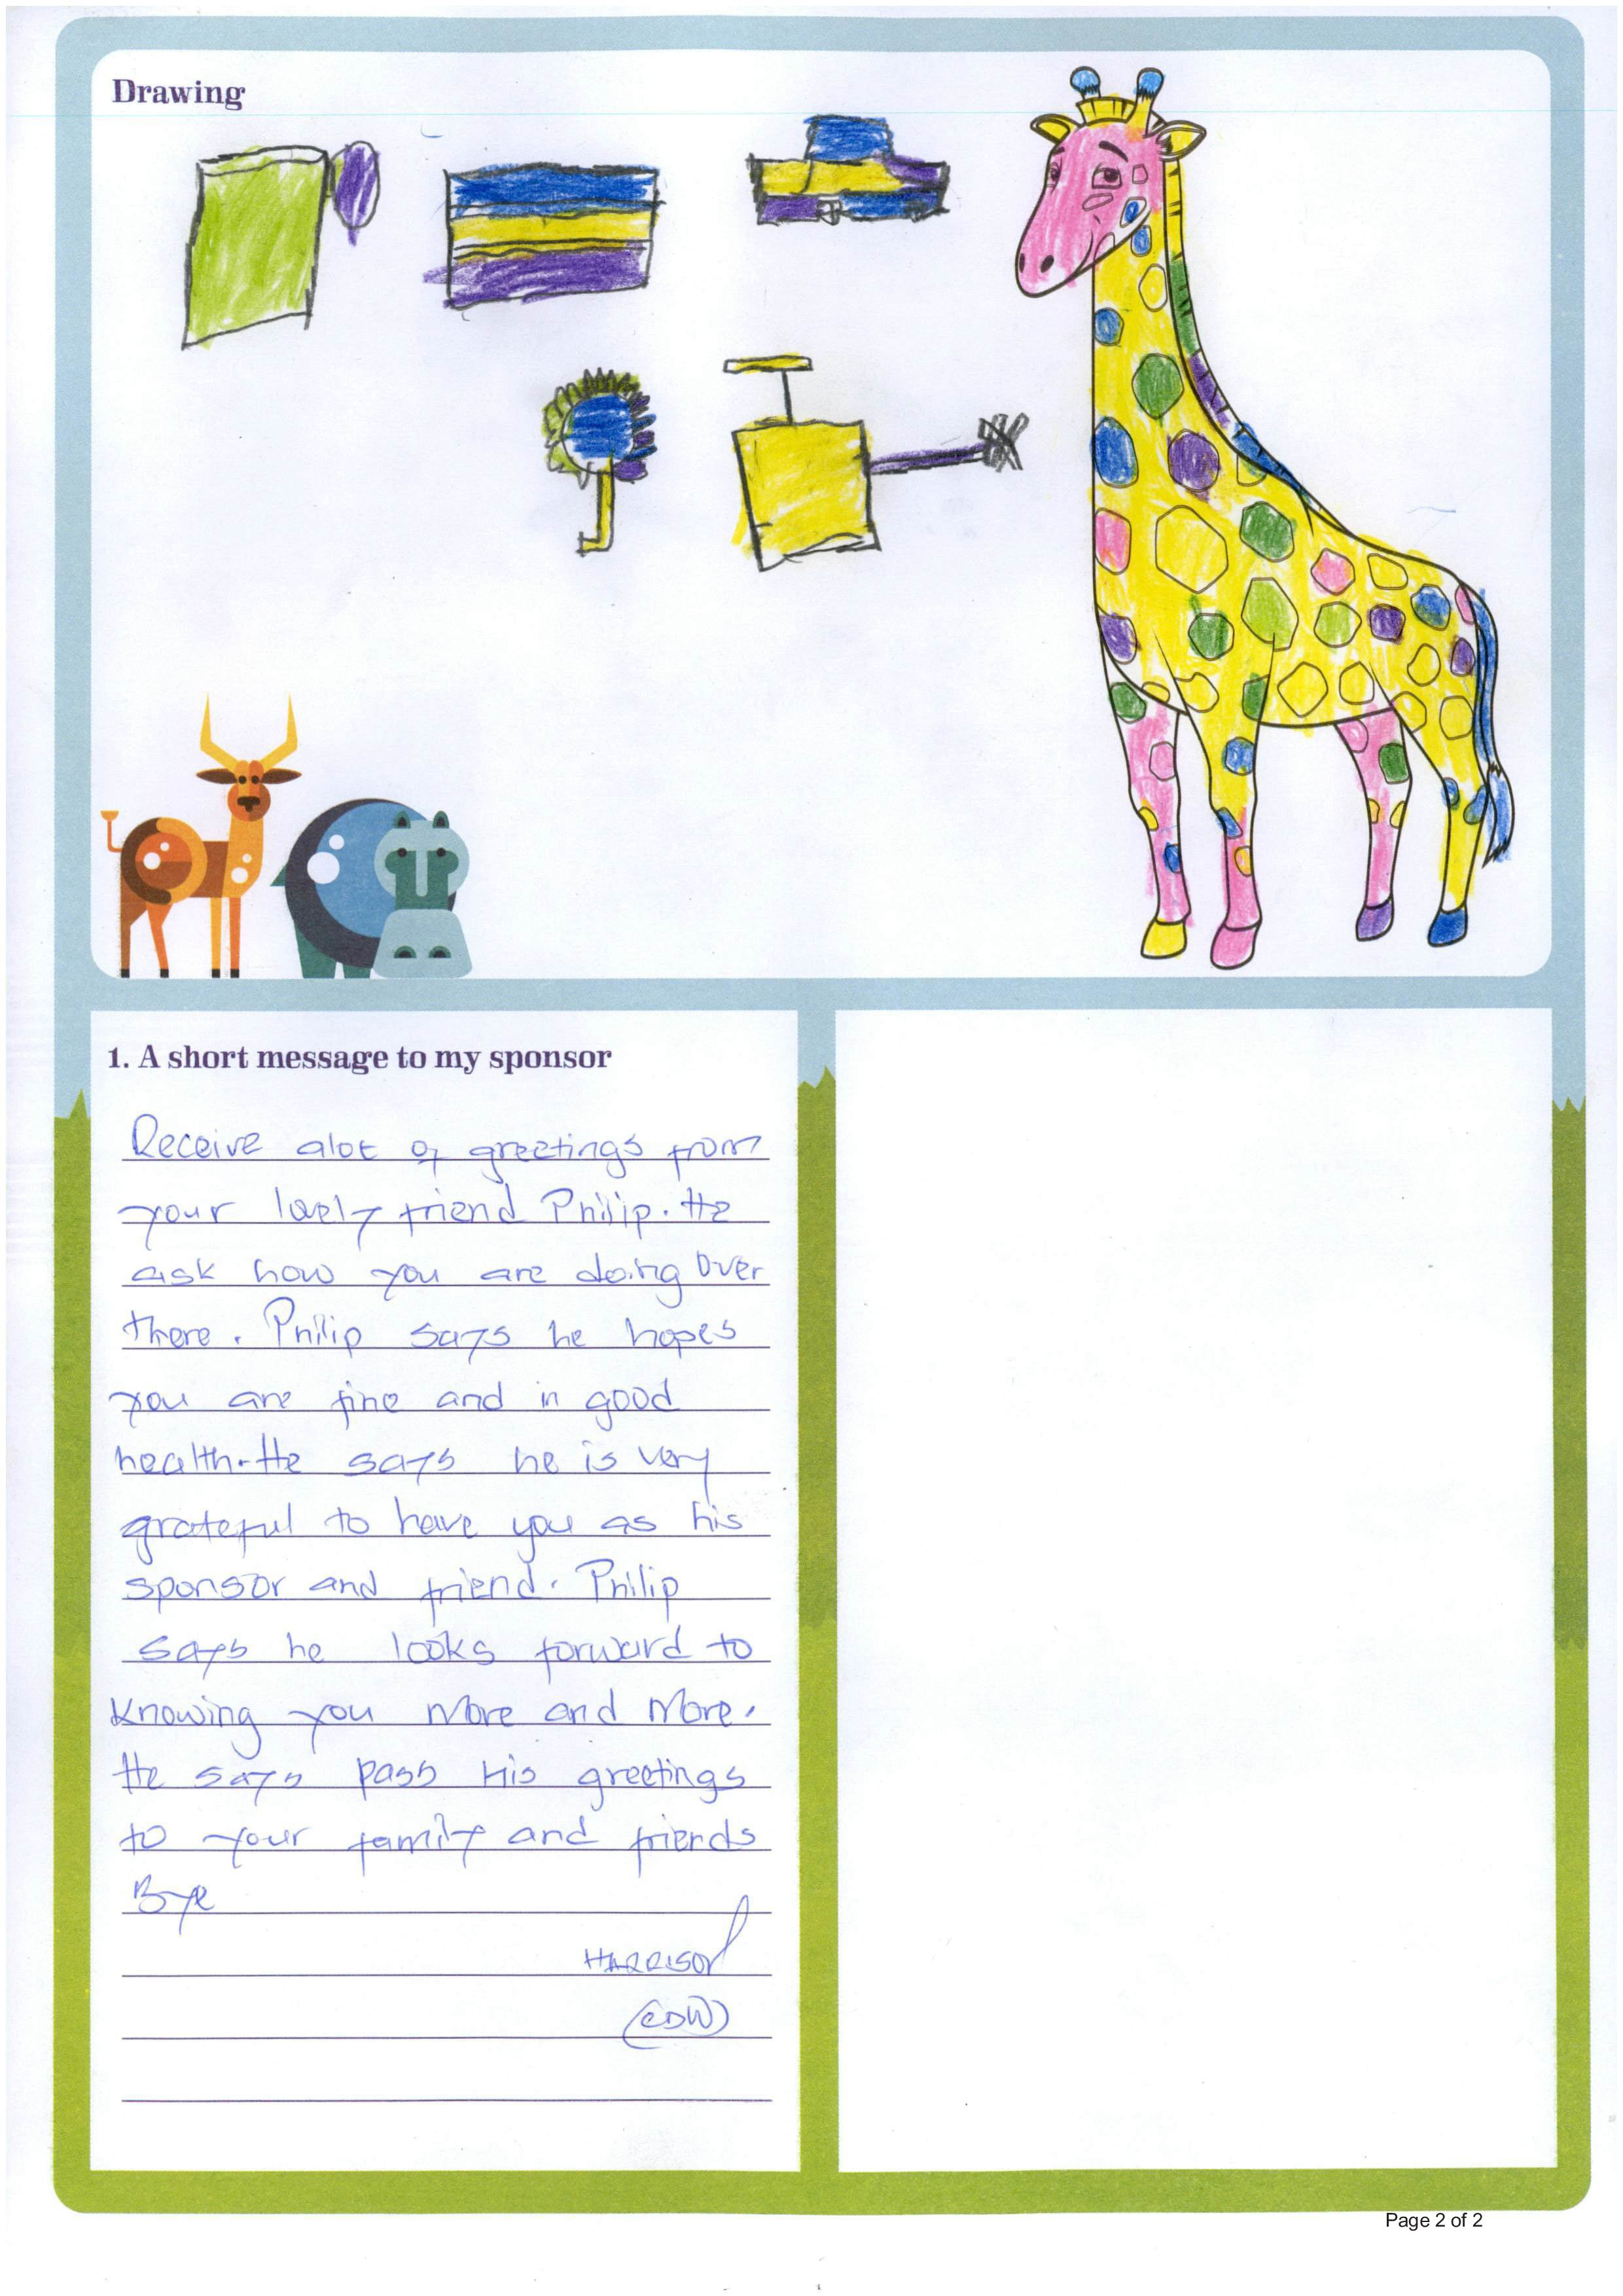 Drawing
1. A short message to my sponsor
Receive alot of greetings from
your lovely friend Philip. He
ask how you are doing over
there. Philip says he hopes
you are fine and in good
health. He says he is very
grateful to have you as his
sponsor and friend. Philip
says he looks forward to
Knowing you More and More.
He says pass His greetings
to your family and friends
Bye
HARRISON
(CDW)
Page 2 of 2